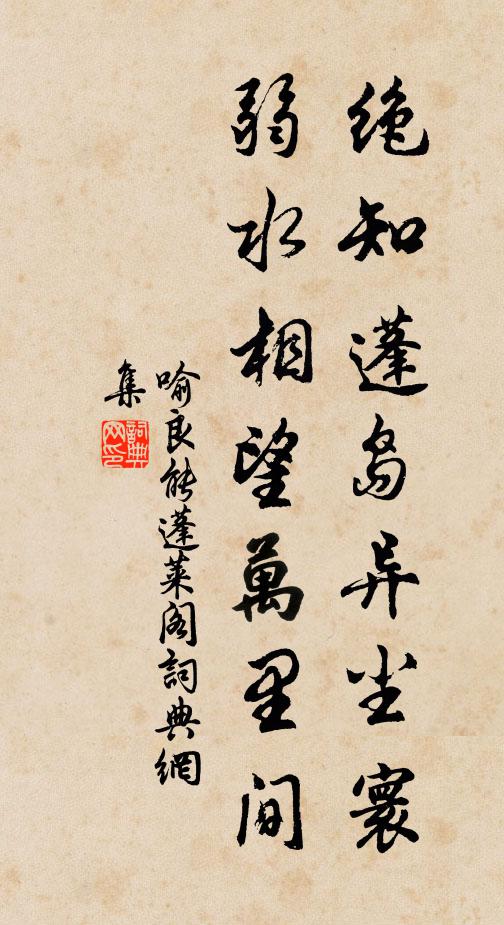 绝知蓬岛异尘寰
弱水相望萬里间
喻良能蓬莱阁詞典網
集
詞典
网印